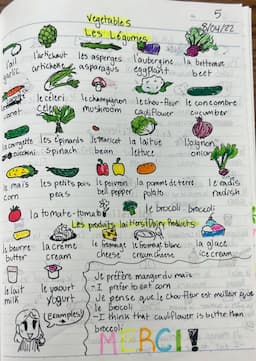 5
Vegetables
Les Légumes
l'ail l'artichaut les asperges l'aubergine la betterave
garlic artichoke asparagus eggplant beet
le céleri le champignon le chou-fleur le concombre
carrot mushroom cauliflower cucumber
la courgette les épinards le haricot la laitue l'oignon
zucchini spinach bean lettuce onion
le maïs les petits pois le poivron la pomme de terre le radis
corn peas bell pepper potato radish
la tomate-tomato le brocoli-broccoli
Les produits laitiers/Dairy Products
le beurre la crème le fromage le fromage blanc la glace
butter cream cheese cream cheese ice cream
le lait le yaourt
milk yogurt
(Examples)
Je préfère manger du maïs
-I prefer to eat corn
Je pense que le chou-fleur est meilleur que
le brocoli
I think that cauliflower is better than
broccoli
MERCI!